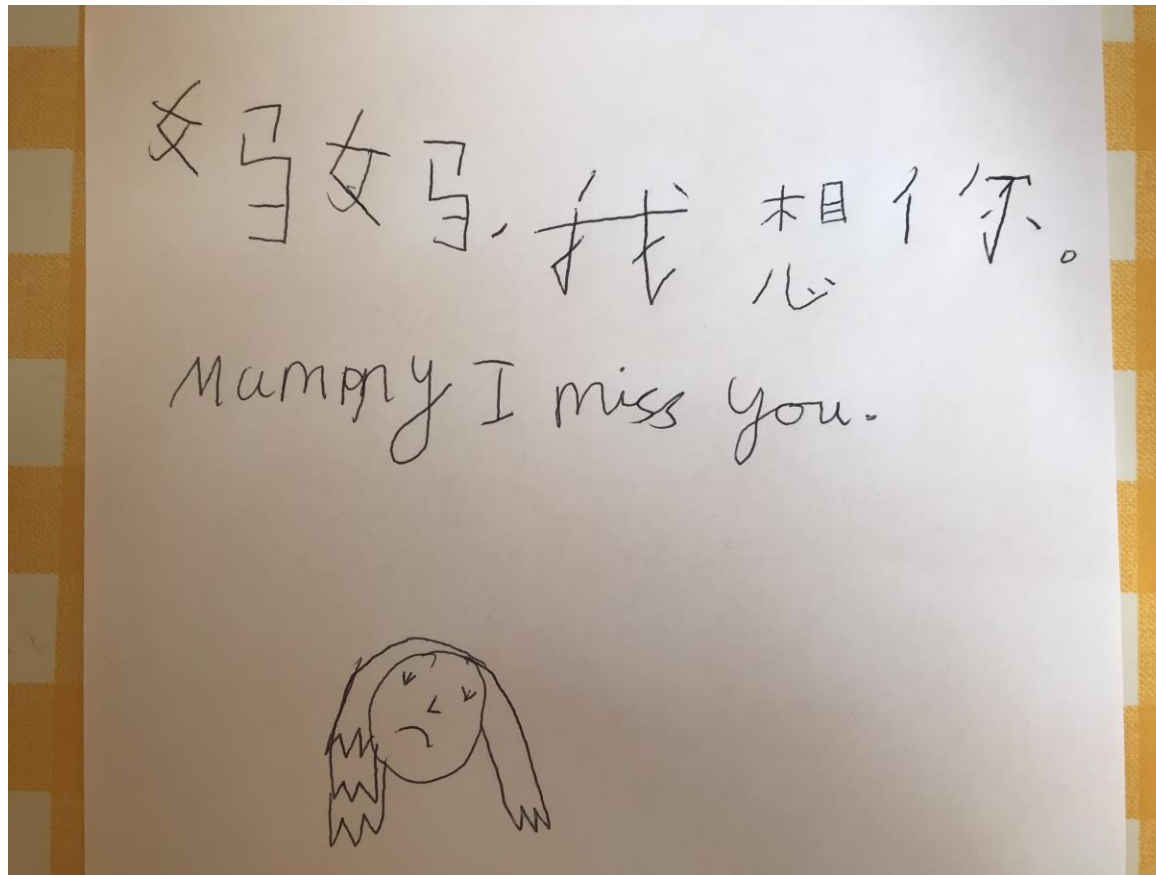 妈妈，我想你。
Mummy I miss you.